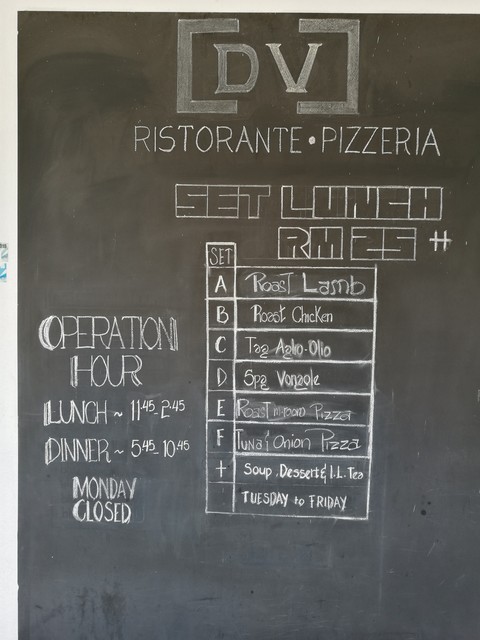 DV
RISTORANTE • PIZZERIA
SET LUNCH
RM 25 ++
SET
A Roast Lamb
B Roast Chicken
C Tag Aglio-Olio
D Spg Vongole
E Roast Pizza
F Tuna & Onion Pizza
+ Soup, Dessert & I.L. Tea
TUESDAY to FRIDAY
OPERATION
HOUR
LUNCH ~ 11:45-2:45
DINNER ~ 5:45-10:45
MONDAY
CLOSED